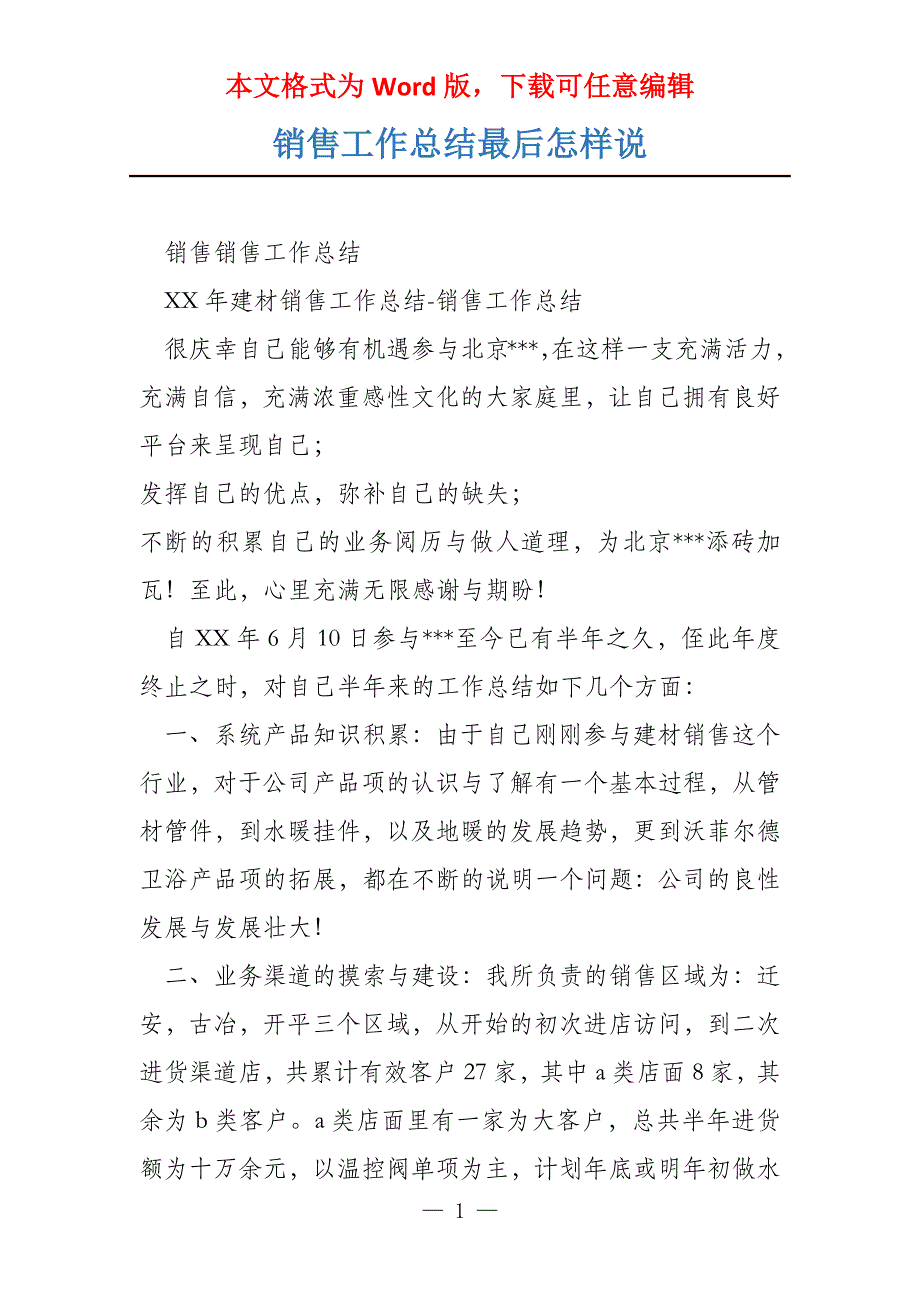 本文格式为 Word 版，下载可任意编辑
销售工作总结最后怎样说
销售销售工作总结
XX 年建材销售工作总结-销售工作总结
很庆幸自己能够有机遇参与北京***,在这样一支充满活力，
充满自信，充满浓重感性文化的大家庭里，让自己拥有良好
平台来呈现自己；
发挥自己的优点，弥补自己的缺失；
不断的积累自己的业务阅历与做人道理，为北京***添砖加
瓦！至此，心里充满无限感谢与期盼！
自 XX 年 6 月 10 日参与***至今已有半年之久，侄此年度
终止之时，对自己半年来的工作总结如下几个方面：
一、系统产品知识积累：由于自己刚刚参与建材销售这个
行业，对于公司产品项的认识与了解有一个基本过程，从管
材管件，到水暖挂件，以及地暖的发展趋势，更到沃菲尔德
卫浴产品项的拓展，都在不断的说明一个问题：公司的良性
发展与发展壮大！
二、业务渠道的摸索与建设：我所负责的销售区域为：迁
安，古冶，开平三个区域，从开始的初次进店访问，到二次
进货渠道店，共累计有效客户 27 家，其中 a 类店面 8 家，其
余为 b 类客户。a 类店面里有一家为大客户，总共半年进货
额为十万余元，以温控阀单项为主，计划年底或明年初做水
— 1 —